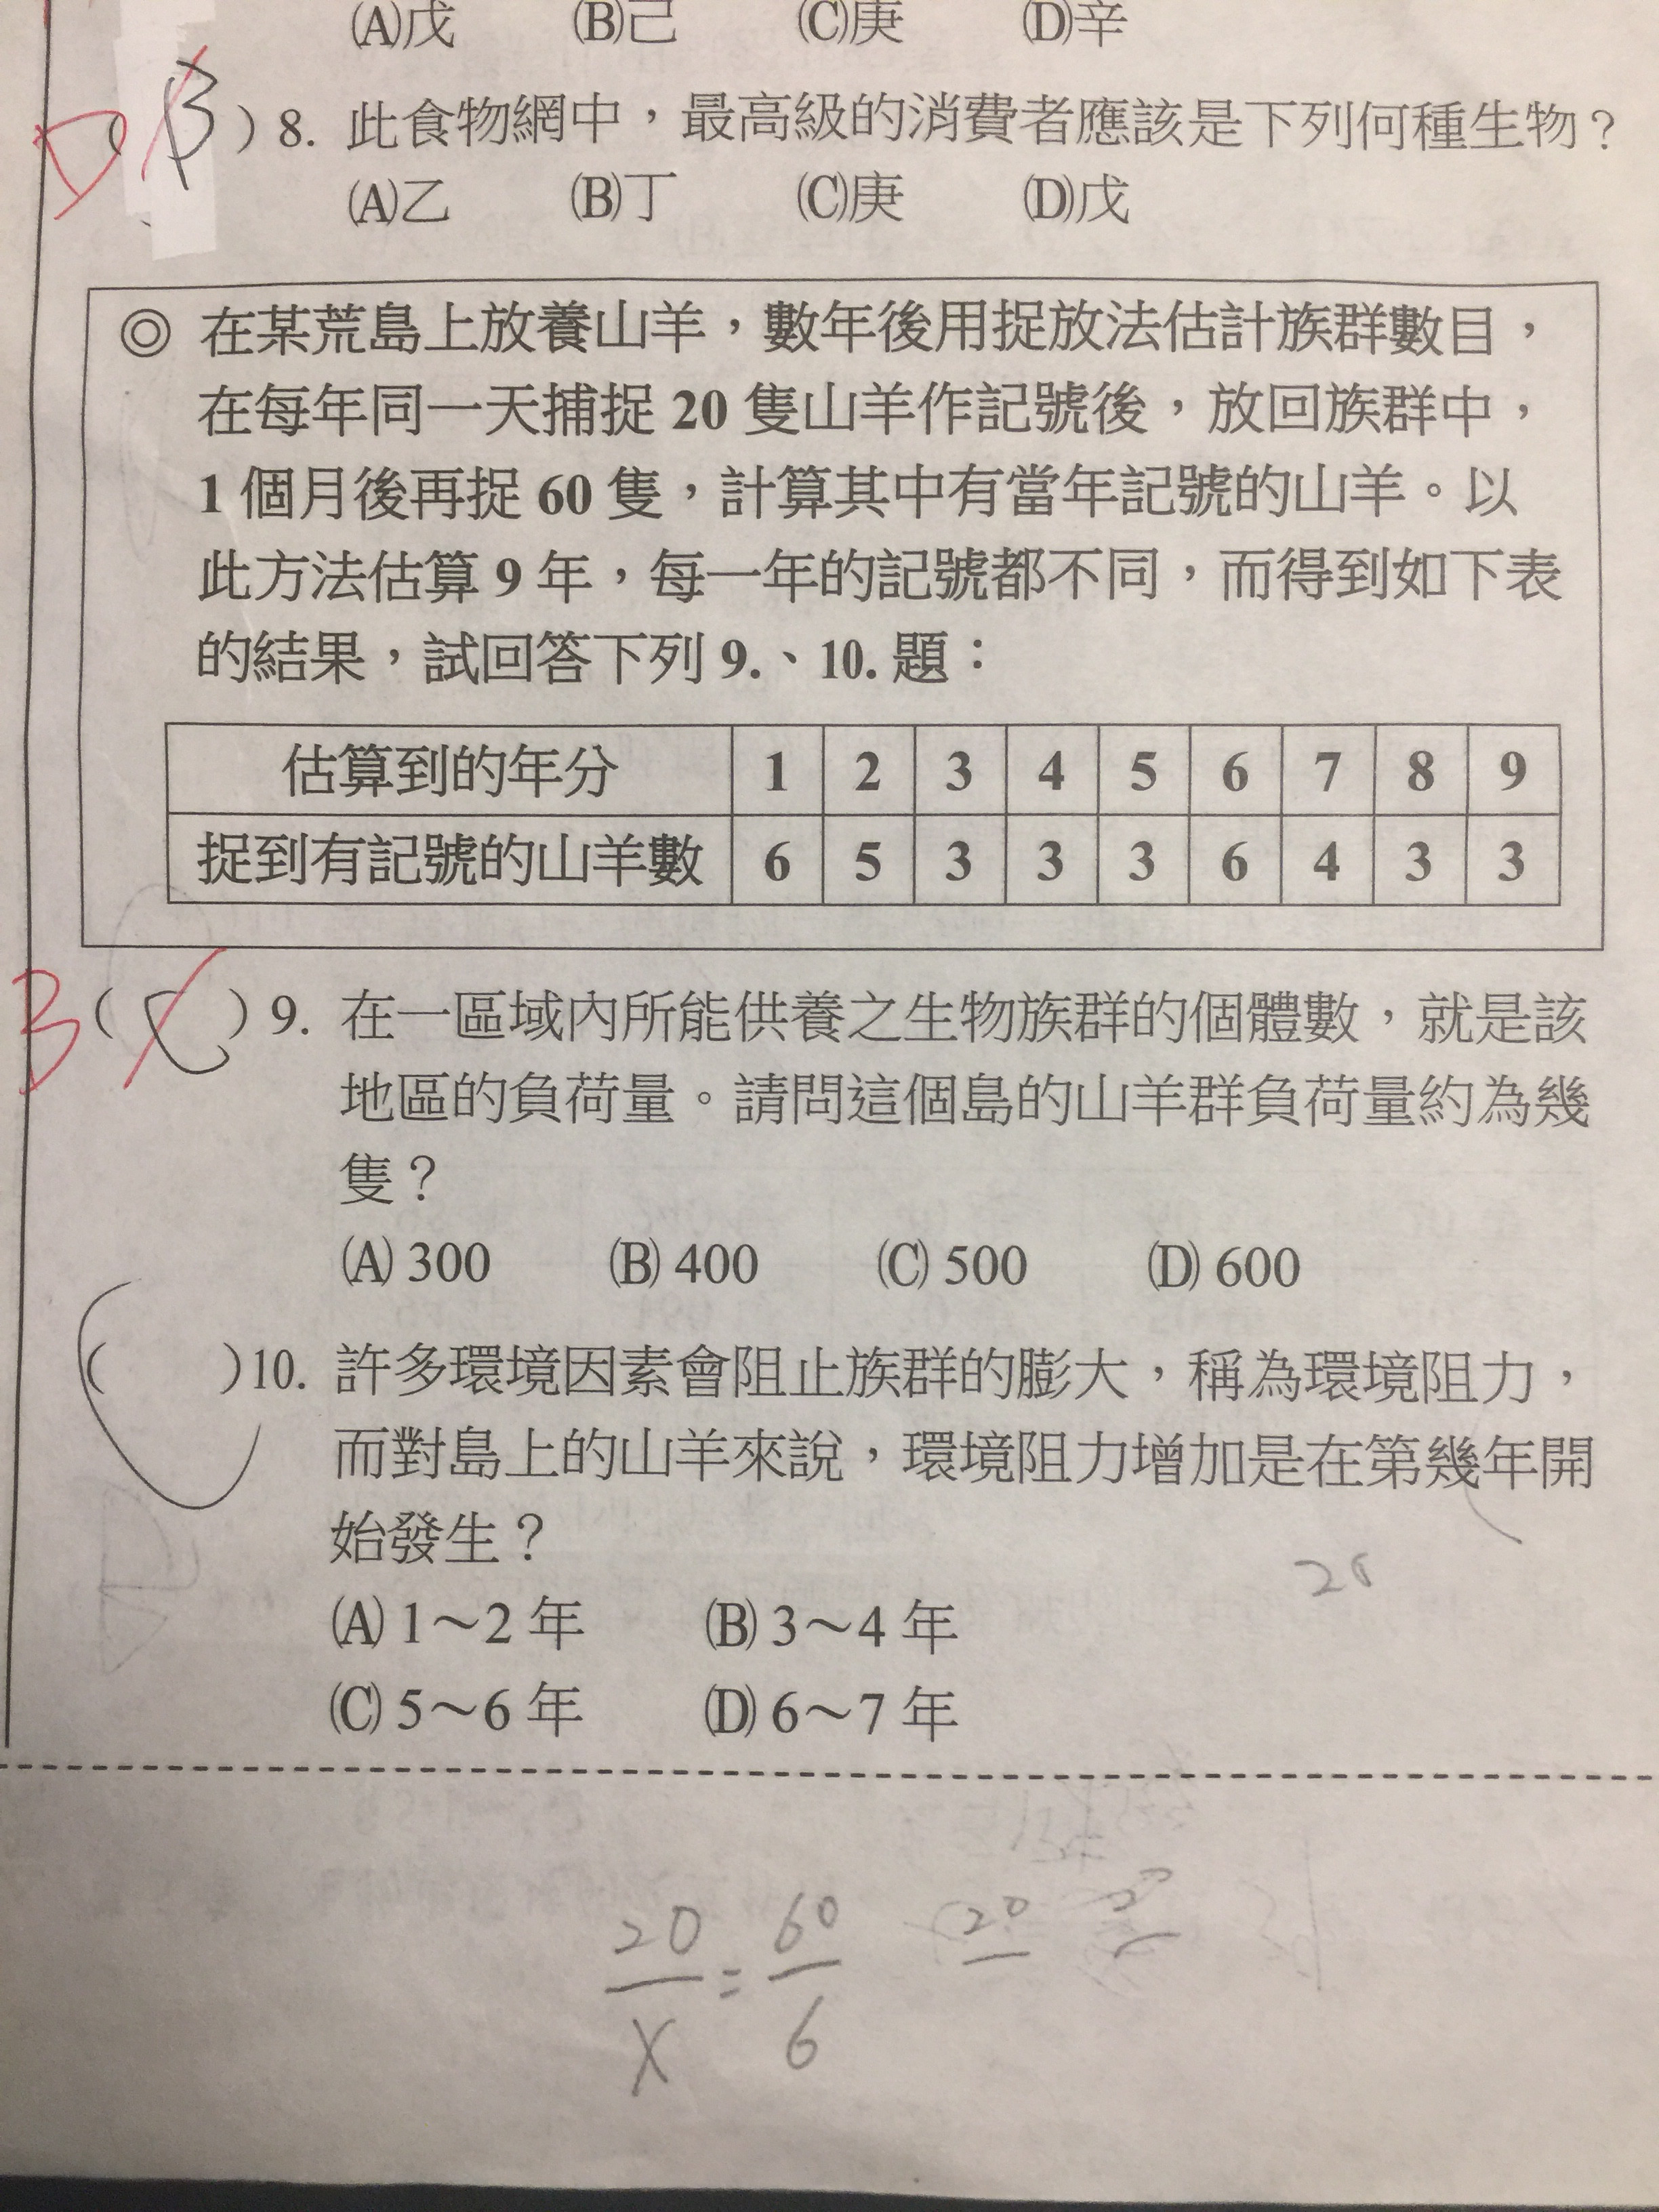 (A)戊 (B)己 (C)庚 (D)辛
D ( B ) 8. 此食物網中，最高級的消費者應該是下列何種生物？
(A)乙 (B)丁 (C)庚 (D)戊
◎ 在某荒島上放養山羊，數年後用捉放法估計族群數目，
在每年同一天捕捉 20 隻山羊作記號後，放回族群中，
1 個月後再捉 60 隻，計算其中有當年記號的山羊。以
此方法估算 9 年，每一年的記號都不同，而得到如下表
的結果，試回答下列 9.、10. 題：
估算到的年分 1 2 3 4 5 6 7 8 9
捉到有記號的山羊數 6 5 3 3 3 6 4 3 3
B ( C ) 9. 在一區域內所能供養之生物族群的個體數，就是該
地區的負荷量。請問這個島的山羊群負荷量約為幾
隻？
(A) 300 (B) 400 (C) 500 (D) 600
( )10. 許多環境因素會阻止族群的膨大，稱為環境阻力，
而對島上的山羊來說，環境阻力增加是在第幾年開
始發生？
(A) 1～2 年 (B) 3～4 年
(C) 5～6 年 (D) 6～7 年
20 60 20 20
=
x 6